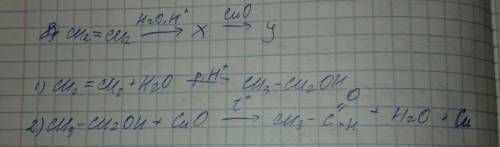 в) CH₂=CH₂ —H₂O, H⁺→ X —CuO→ Y
1) CH₂=CH₂ + H₂O —H⁺→ CH₃–CH₂OH
2) CH₃–CH₂OH + CuO —t°→ CH₃–C(=O)–H + H₂O + Cu